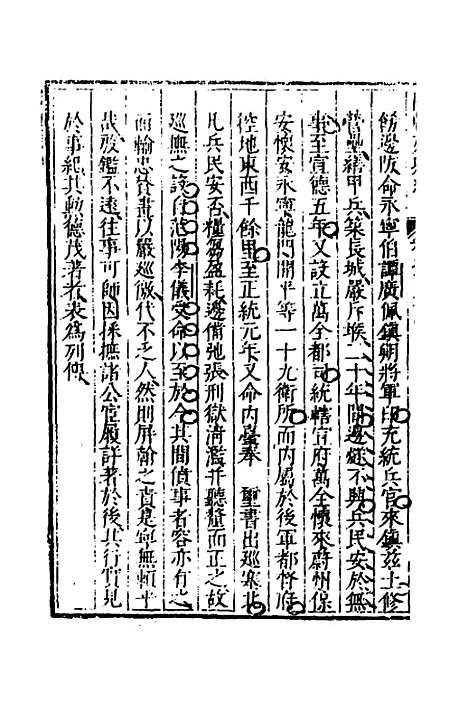 飭邊防命永寧伯譚廣佩鎮朔將軍印充統兵官來鎮茲土修
營壘繕甲兵築長城嚴斥堠二十年間邊烽不興兵民安於無
事至宣德五年又設立萬全都司統轄宣府萬全懷來蔚州保
安懷安永寧龍門開平等一十九衛所而內屬於後軍都督府
控地東西千餘里至正統元年又命內臺奉　璽書出巡塞北
凡兵民安否糧芻盈耗邊備弛張刑獄清濫并聽釐而正之故
巡撫之設自范陽李儀受命以至於今其間僨事者容亦有之
而輸忠賛畫以嚴巡儆代不乏人然則屏翰之責是寧無頼乎
哉殷鑑不遠往事可師因採摭諸公宦履詳著於後其行實見
於事紀其勳德茂著者表為列傳